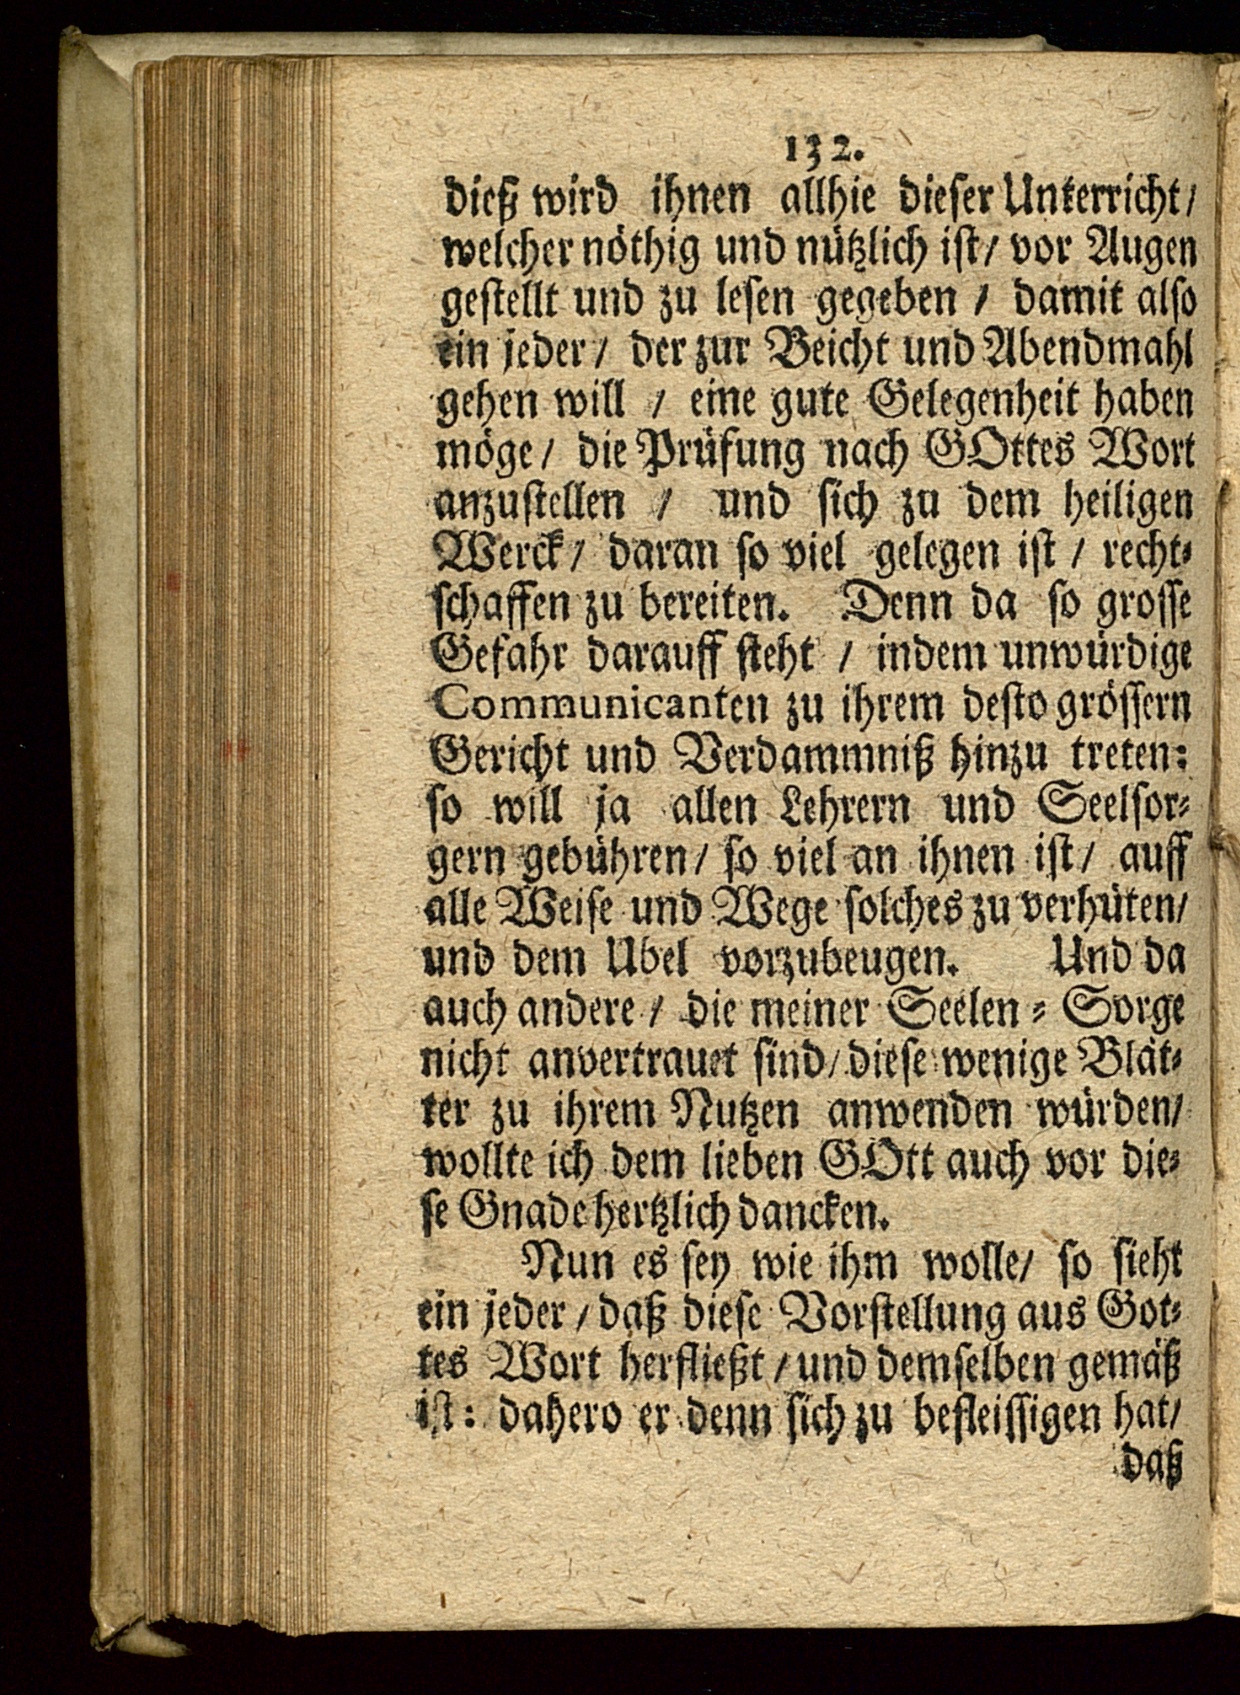 132.
dieß wird ihnen allhie dieser Unterricht/
welcher nöthig und nützlich ist/ vor Augen
gestellt und zu lesen gegeben / damit also
ein jeder/ der zur Beicht und Abendmahl
gehen will / eine gute Gelegenheit haben
möge/ die Prüfung nach GOttes Wort
anzustellen / und sich zu dem heiligen
Werck/ daran so viel gelegen ist / recht-
schaffen zu bereiten. Denn da so grosse
Gefahr darauff steht / indem unwürdige
Communicanten zu ihrem desto grössern
Gericht und Verdammniß hinzu treten:
so will ja allen Lehrern und Seelsor-
gern gebühren/ so viel an ihnen ist/ auff
alle Weise und Wege solches zu verhüten/
und dem Ubel vorzubeugen. Und da
auch andere / die meiner Seelen-Sorge
nicht anvertrauet sind/ diese wenige Blät-
ter zu ihrem Nutzen anwenden würden/
wollte ich dem lieben GOtt auch vor die-
se Gnade hertzlich dancken.
Nun es sey wie ihm wolle/ so sieht
ein jeder / daß diese Vorstellung aus Got-
tes Wort herfließt / und demselben gemäß
ist: dahero er denn sich zu befleissigen hat/
daß